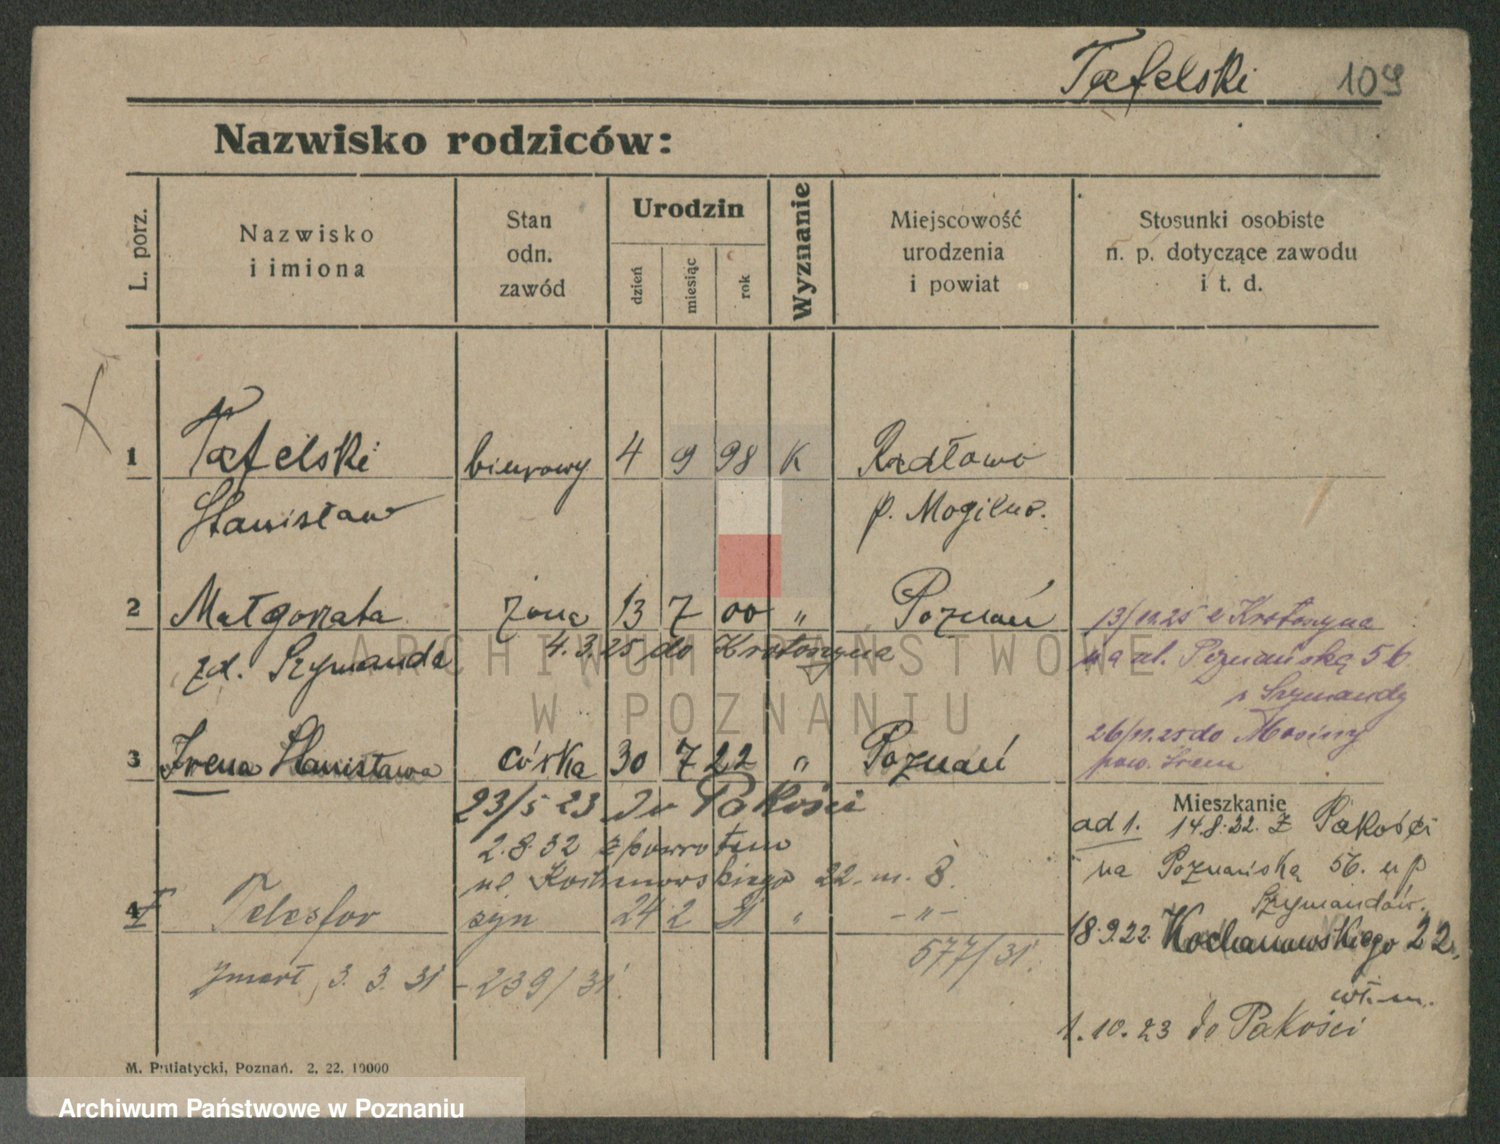 Tafelski 109
Nazwisko rodziców:
L. porz.
Nazwisko
i imiona
Stan
odn.
zawód
Urodzin
dzień
miesiąc
rok
Wyznanie
Miejscowość
urodzenia
i powiat
Stosunki osobiste
n. p. dotyczące zawodu
i t. d.
1 Tafelski biurowy 4 9 98 K Radłowo
Stanisław p. Mogilno.
2 Małgorzata żona 13 7 00 " Poznań
zd. Szymanda 4.3.25 do Krotoszyna
13/11.25 z Krotoszyna
na ul. Poznańską 56
u Szymandy
26/11.25 do Mosiny
pow. Śrem
3 Irena Stanisława córka 30 7 22 " Poznań
23/5 23 do Pakości
2.8.32 z powrotem
ul Kochanowskiego 22 m. 8.
4 Telesfor syn 24 2 31 " -"-
577/31.
zmarł 3. 3. 31 - 239/31.
Mieszkanie
ad 1. 14.8.22. z Pakości
na Poznańską 56. u p
Szymandów.
18.9.22. Kochanowskiego 22,
wł. m.
1.10.23 do Pakości
M. Putiatycki, Poznań. 2. 22. 10000
ARCHIWUM PAŃSTWOWE
W POZNANIU
Archiwum Państwowe w Poznaniu